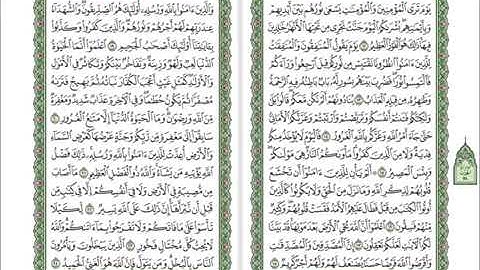 يَوْمَ تَرَى الْمُؤْمِنِينَ وَالْمُؤْمِنَاتِ يَسْعَى نُورُهُم بَيْنَ أَيْدِيهِمْ
وَبِأَيْمَانِهِم بُشْرَاكُمُ الْيَوْمَ جَنَّاتٌ تَجْرِي مِن تَحْتِهَا الْأَنْهَارُ خَالِدِينَ
فِيهَا ذَلِكَ هُوَ الْفَوْزُ الْعَظِيمُ ١٢ يَوْمَ يَقُولُ الْمُنَافِقُونَ وَالْمُنَافِقَاتُ
لِلَّذِينَ ءَامَنُوا انظُرُونَا نَقْتَبِسْ مِن نُّورِكُمْ قِيلَ ارْجِعُوا وَرَاءَكُمْ
فَالْتَمِسُوا نُورًا فَضُرِبَ بَيْنَهُم بِسُورٍ لَّهُ بَابٌ بَاطِنُهُ فِيهِ الرَّحْمَةُ
وَظَاهِرُهُ مِن قِبَلِهِ الْعَذَابُ ١٣ يُنَادُونَهُمْ أَلَمْ نَكُن مَّعَكُمْ قَالُوا بَلَى
وَلَكِنَّكُمْ فَتَنتُمْ أَنفُسَكُمْ وَتَرَبَّصْتُمْ وَارْتَبْتُمْ وَغَرَّتْكُمُ الْأَمَانِيُّ
حَتَّى جَاءَ أَمْرُ اللَّهِ وَغَرَّكُم بِاللَّهِ الْغَرُورُ ١٤ فَالْيَوْمَ لَا يُؤْخَذُ مِنكُمْ
فِدْيَةٌ وَلَا مِنَ الَّذِينَ كَفَرُوا مَأْوَاكُمُ النَّارُ هِيَ مَوْلَاكُمْ
وَبِئْسَ الْمَصِيرُ ١٥ أَلَمْ يَأْنِ لِلَّذِينَ ءَامَنُوا أَن تَخْشَعَ
قُلُوبُهُمْ لِذِكْرِ اللَّهِ وَمَا نَزَلَ مِنَ الْحَقِّ وَلَا يَكُونُوا كَالَّذِينَ
أُوتُوا الْكِتَابَ مِن قَبْلُ فَطَالَ عَلَيْهِمُ الْأَمَدُ فَقَسَتْ قُلُوبُهُمْ وَكَثِيرٌ
مِّنْهُمْ فَاسِقُونَ ١٦ اعْلَمُوا أَنَّ اللَّهَ يُحْيِ الْأَرْضَ بَعْدَ مَوْتِهَا قَدْ بَيَّنَّا
لَكُمُ الْآيَاتِ لَعَلَّكُمْ تَعْقِلُونَ ١٧ إِنَّ الْمُصَّدِّقِينَ وَالْمُصَّدِّقَاتِ
وَأَقْرَضُوا اللَّهَ قَرْضًا حَسَنًا يُضَاعَفُ لَهُمْ وَلَهُمْ أَجْرٌ كَرِيمٌ ١٨
وَالَّذِينَ ءَامَنُوا بِاللَّهِ وَرُسُلِهِ أُولَئِكَ هُمُ الصِّدِّيقُونَ وَالشُّهَدَاءُ
عِندَ رَبِّهِمْ لَهُمْ أَجْرُهُمْ وَنُورُهُمْ وَالَّذِينَ كَفَرُوا وَكَذَّبُوا
بِآيَاتِنَا أُولَئِكَ أَصْحَابُ الْجَحِيمِ ١٩ اعْلَمُوا أَنَّمَا الْحَيَاةُ الدُّنْيَا
لَعِبٌ وَلَهْوٌ وَزِينَةٌ وَتَفَاخُرٌ بَيْنَكُمْ وَتَكَاثُرٌ فِي الْأَمْوَالِ
وَالْأَوْلَادِ كَمَثَلِ غَيْثٍ أَعْجَبَ الْكُفَّارَ نَبَاتُهُ ثُمَّ يَهِيجُ فَتَرَاهُ
مُصْفَرًّا ثُمَّ يَكُونُ حُطَامًا وَفِي الْآخِرَةِ عَذَابٌ شَدِيدٌ وَمَغْفِرَةٌ
مِّنَ اللَّهِ وَرِضْوَانٌ وَمَا الْحَيَاةُ الدُّنْيَا إِلَّا مَتَاعُ الْغُرُورِ ٢٠
سَابِقُوا إِلَى مَغْفِرَةٍ مِّن رَّبِّكُمْ وَجَنَّةٍ عَرْضُهَا كَعَرْضِ السَّمَاءِ
وَالْأَرْضِ أُعِدَّتْ لِلَّذِينَ ءَامَنُوا بِاللَّهِ وَرُسُلِهِ ذَلِكَ فَضْلُ
اللَّهِ يُؤْتِيهِ مَن يَشَاءُ وَاللَّهُ ذُو الْفَضْلِ الْعَظِيمِ ٢١ مَا أَصَابَ
مِن مُّصِيبَةٍ فِي الْأَرْضِ وَلَا فِي أَنفُسِكُمْ إِلَّا فِي كِتَابٍ مِّن
قَبْلِ أَن نَّبْرَأَهَا إِنَّ ذَلِكَ عَلَى اللَّهِ يَسِيرٌ ٢٢ لِّكَيْلَا
تَأْسَوْا عَلَى مَا فَاتَكُمْ وَلَا تَفْرَحُوا بِمَا ءَاتَاكُمْ وَاللَّهُ
لَا يُحِبُّ كُلَّ مُخْتَالٍ فَخُورٍ ٢٣ الَّذِينَ يَبْخَلُونَ وَيَأْمُرُونَ
النَّاسَ بِالْبُخْلِ وَمَن يَتَوَلَّ فَإِنَّ اللَّهَ هُوَ الْغَنِيُّ الْحَمِيدُ ٢٤